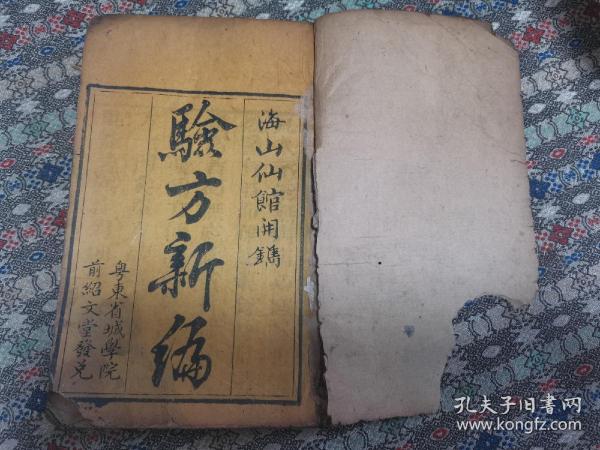 海山仙館開鐫
驗方新編
粵東省城學院
前紹文堂發兌
孔夫子旧書网